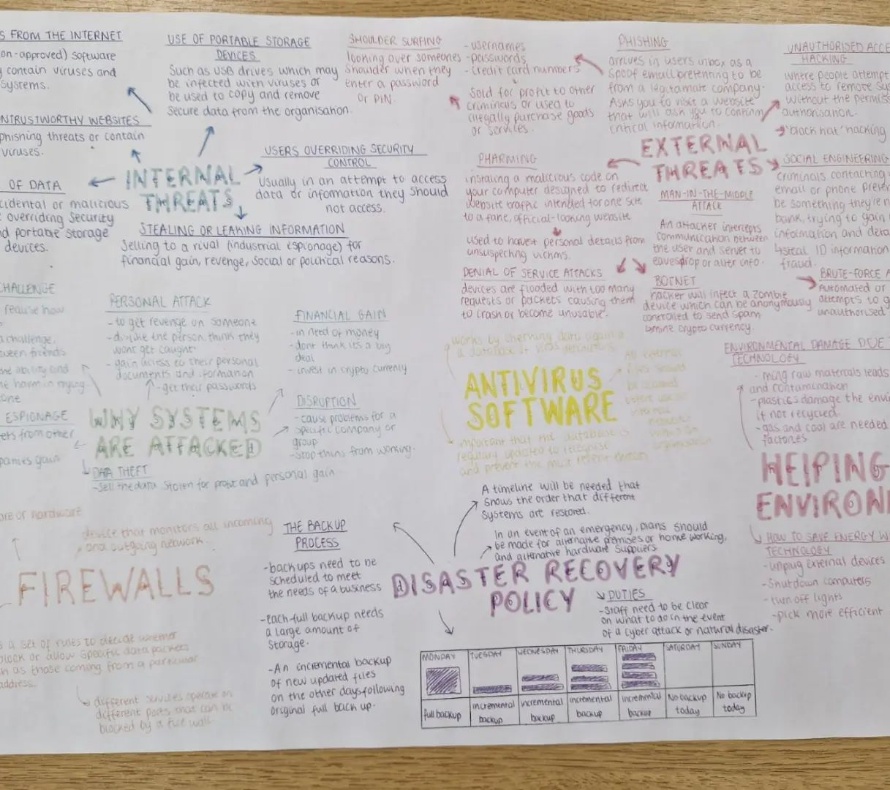 S FROM THE INTERNET
on-approved) software
contain viruses and
systems.
NTRUSTWORTHY WEBSITES
phishing threats or contain
viruses.
OF DATA
cidental or malicious
overriding security
nd portable storage
devices.
USE OF PORTABLE STORAGE
DEVICES
Such as USB drives which may
be infected with viruses or
be used to copy and remove
secure data from the organisation.
INTERNAL
THREATS
USERS OVERRIDING SECURITY
CONTROL
usually in an attempt to access
data or information they should
not access.
STEALING OR LEAKING INFORMATION
Selling to a rival (industrial espionage) for
financial gain, revenge, social or political reasons.
SHOULDER SURFING
looking over someones
shoulder when they
enter a password
or PIN.
- usernames
- passwords
- credit card numbers
Sold for profit to other
criminals or used to
illegally purchase goods
or services.
PHISHING
arrives in users inbox as a
spoof email pretending to be
from a legitamate company.
Asks you to visit a website
that will ask you to confirm
critical information.
UNAUTHORISED ACCE
HACKING
where people attempt
access to remove sys
without the permiss
authorisation.
"black hat" hacking
EXTERNAL
THREATS
PHARMING
installing a malicious code on
your computer designed to redirect
website traffic intended for one site
to a fake, official-looking website
used to harvest personal details from
unsuspecting victims.
MAN-IN-THE-MIDDLE
ATTACK
An attacker intercepts
communication between
the user and server to
eavesdrop or alter info.
SOCIAL ENGINEERING
criminals contacting
email or phone preten
be something they're n
bank, trying to gain
information and deta
ID information
fraud.
DENIAL OF SERVICE ATTACKS
devices are flooded with too many
requests or packets causing them
to crash or become unusable.
BOTNET
hacker will infect a zombie
device which can be anonymously
controlled to send spam
or mine crypto currency.
BRUTE-FORCE A
Automated or
attempts to g
unauthorised
CHALLENGE
realise how
challenge.
ween friends
ability and
harm in trying
one
ESPIONAGE
ets from other
gain
PERSONAL ATTACK
- to get revenge on someone
- dislike the person
wont get caught
- gain access to their personal
documents and information
- get their passwords
FINANCIAL GAIN
- in need of money
- dont think it's a big
deal
- invest in crypto currency
WHY SYSTEMS
ARE ATTACKED
DISRUPTION
- cause problems for a
specific company or
group
- stop things from working.
DATA THEFT
- sell the data stolen for profit and personal gain
ANTIVIRUS
SOFTWARE
important that the database is
regularly updated to recognise
and prevent the most recent
ENVIRONMENTAL DAMAGE DUE T
TECHNOLOGY
- mining raw materials leads
and contamination
- plastics damage the envi
if not recycled.
- gas and coal are needed
factories
HElPING
ENVIRON
HOW TO SAVE ENERGY W
TECHNOLOGY
- unplug external devices
- Shutdown computers
- turn off lights
- pick more efficient
are or hardware
device that monitors all incoming
and outgoing network.
FIREWALLS
a set of rules to decide whether
block or allow specific data packets
ch as those coming from a particular
address.
different services operate on
different ports that can be
blocked by a fire wall.
THE BACKUP
PROCESS
- backups need to be
scheduled to meet
the needs of a business
- each full backup needs
a large amount of
storage.
- An incremental backup
of new updated files
on the other days following
original full back up.
A timeline will be needed that
shows the order that different
systems are restored.
In an event of an emergency, plans should
be made for alternative premises or home working,
and alternative hardware suppliers
DISASTER RECOVERY
POLICY
DUTIES
- Staff need to be clear
on what to do in the event
of a cyber attack or natural disaster.
MONDAY TUESDAY WEDNESDAY THURSDAY FRIDAY SATURDAY SUNDAY
full backup incremental backup incremental backup incremental backup incremental backup No backup today No backup today